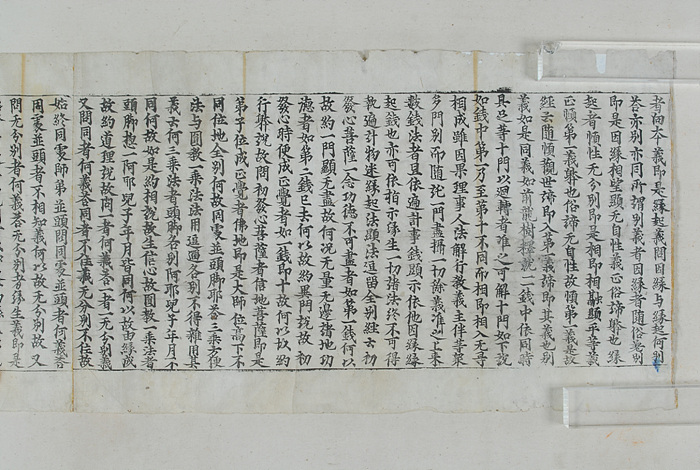 者由本義即是緣起義問因緣与緣起何別
答亦別亦同所謂別義者因緣者隨俗差別
即是因緣相望顯无自性義正俗諦體也緣
起者順性无分別即是相即相融顯平等義
正順第一義體也俗諦无自性故順第一義是故
經云隨順觀世諦即入第一義諦即其義也別
義如是同義如前龍樹釋就一錢中依同時
具足等十門以迴轉者准之可解十門如下說
如錢中第一乃至第十不同而相即相入无㝵
相成雖因果理事人法解行教義主伴等衆
多門別而隨詑一門盡攝一切餘義准之上來
數錢法者且依遍計事錢顯示依他因緣緣
起錢也亦可依指示緣生一切諸法終不可得
執遍計物迷緣起法顯法逗留全別經云初
發心菩薩一念功德不可盡者如第一錢何以
故約一門顯无盡故何況无量无邊諸地功
德者如第二錢已去何以故約異門說故初
發心時便成正覺者如一錢即十故何以故約
行體說故問初發心菩薩者信地菩薩即是
弟子位成正覺者佛地即是大師位高下不
同位地全別何故同處並頭脚耶荅三乘方便
法与圓教一乘法法用逗遛各別不得雜用其
義云何三乘法者頭脚各別阿耶兒子年月不
同何故如是約相說故生信心故圓教一乘法者
頭脚惣一阿耶兒子年月皆同何以故由緣成
故約道理說故問一者何義荅一者一无分別義
又問同者何義荅同者不住義无分別不住故
始終同處師弟並頭問同處並頭者何義荅
同處並頭者不相知義何以故无分別故又
問无分別者何義荅无分別者緣生義即是